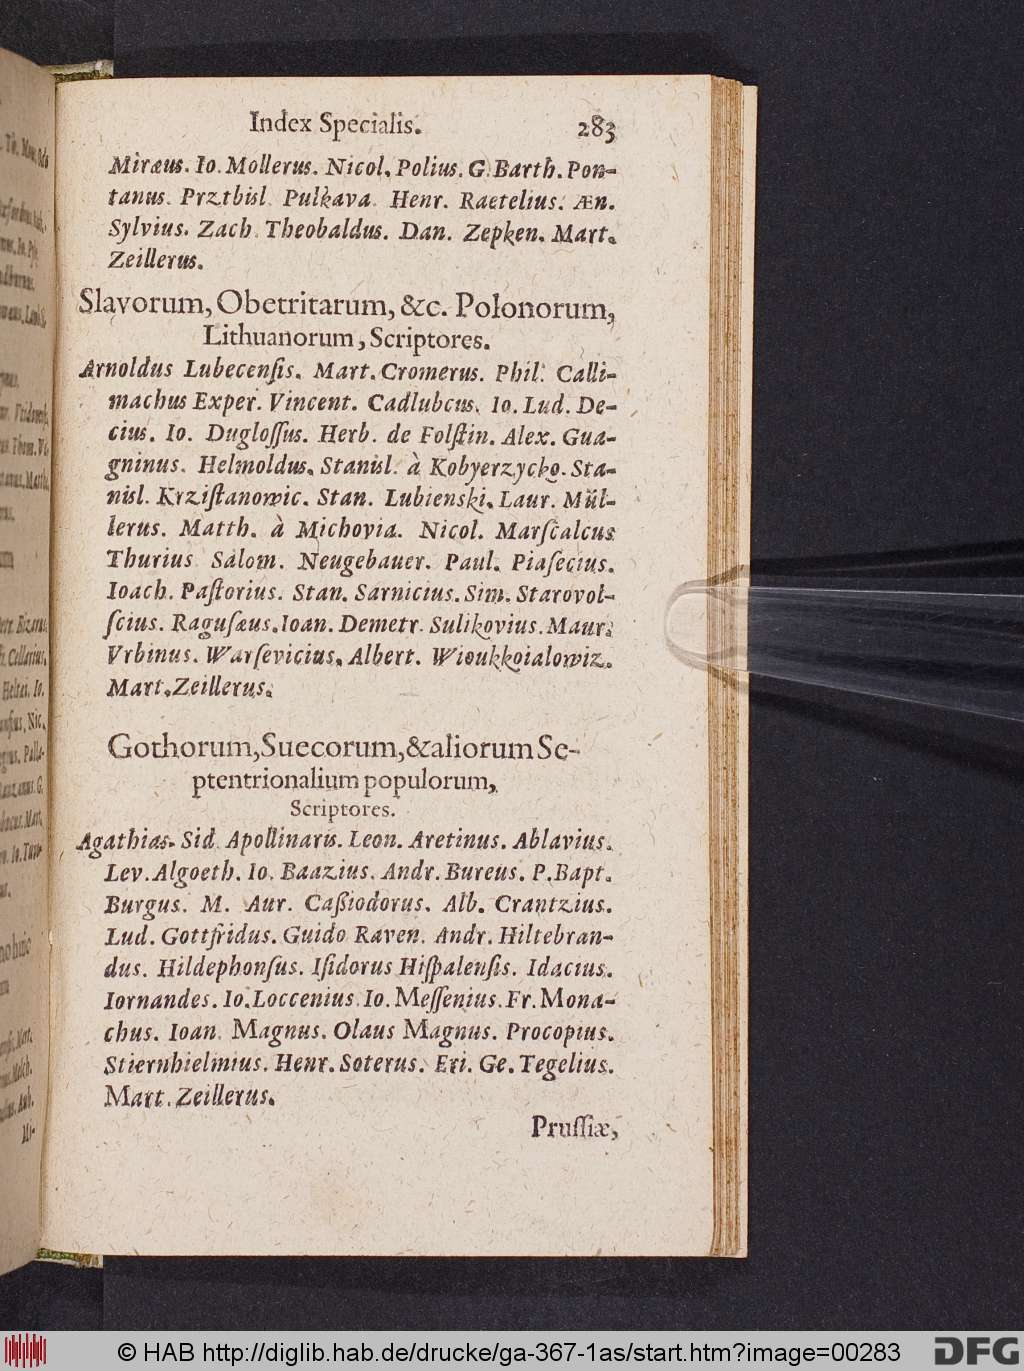 Index Specialis. 283
Miræus. Io. Mollerus. Nicol. Polius. G. Barth. Pon-
tanus. Prztbisl Pulkava. Henr. Raetelius. Æn.
Sylvius. Zach. Theobaldus. Dan. Zepken. Mart.
Zeillerus.
Slavorum, Obetritarum, &c. Polonorum,
Lithuanorum, Scriptores.
Arnoldus Lubecenſis. Mart. Cromerus. Phil. Calli-
machus Exper. Vincent. Cadlubcus. Io. Lud. De-
cius. Io. Dugloſſus. Herb. de Folſtin. Alex. Gua-
gninus. Helmoldus. Stanisl. à Kobyerzycko. Sta-
nisl. Krziſtanowic. Stan. Lubienski. Laur. Mül-
lerus. Matth. à Michovia. Nicol. Marſcalcus
Thurius Salom. Neugebauer. Paul. Piaſecius.
Ioach. Paſtorius. Stan. Sarnicius. Sim. Starovol-
ſcius. Raguſæus. Ioan. Demetr. Sulikovius. Maur.
Vrbinus. Warſevicius. Albert. Wioukkoialowiz.
Mart. Zeillerus.
Gothorum, Suecorum, & aliorum Se-
ptentrionalium populorum,
Scriptores.
Agathias. Sid. Apollinaris. Leon. Aretinus. Ablavius.
Lev. Algoeth. Io. Baazius. Andr. Bureus. P. Bapt.
Burgus. M. Aur. Caßiodorus. Alb. Crantzius.
Lud. Gottfridus. Guido Raven. Andr. Hiltebran-
dus. Hildephonſus. Iſidorus Hiſpalenſis. Idacius.
Iornandes. Io. Loccenius. Io. Meſſenius. Fr. Mona-
chus. Ioan. Magnus. Olaus Magnus. Procopius.
Stiernhielmius. Henr. Soterus. Eri. Ge. Tegelius.
Mart. Zeillerus.
Pruſſiæ,
© HAB http://diglib.hab.de/drucke/ga-367-1as/start.htm?image=00283
DFG